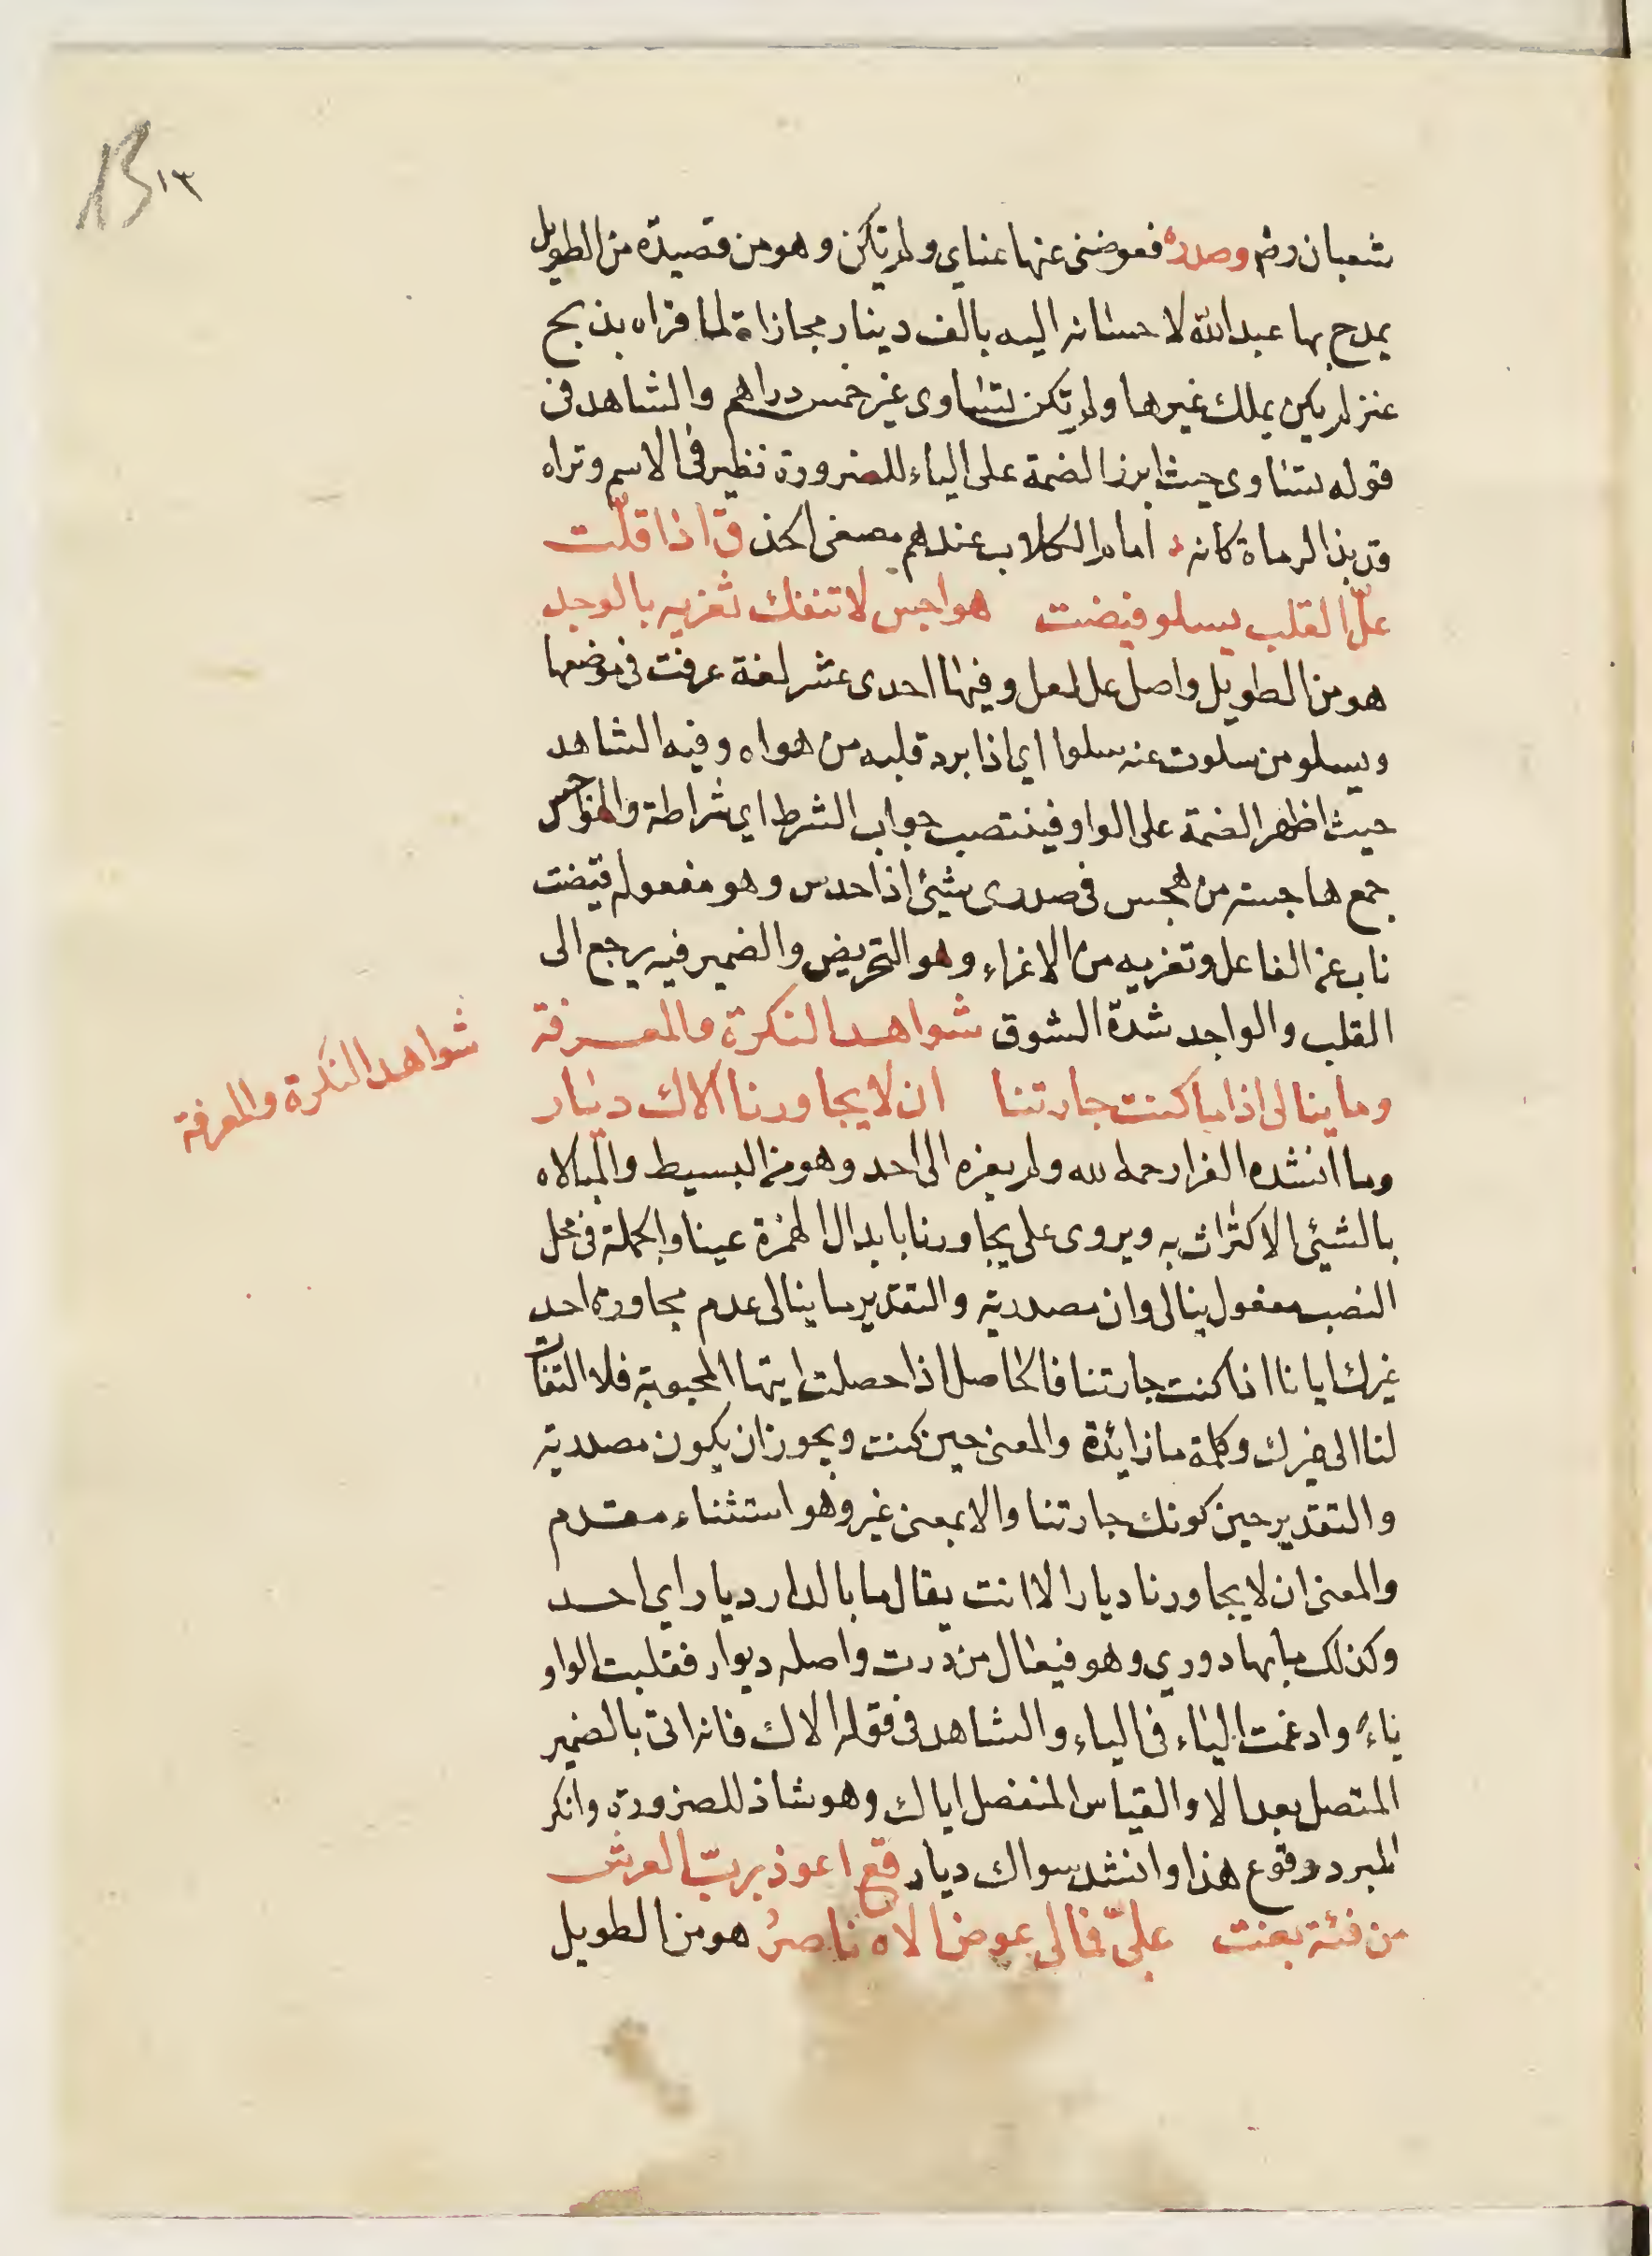 13 ١٣
شعبان رضه وصدره فعوضنى عنها عناى ولم تكن وهو من قصيدة من الطويل
يمدح بها عبد الله لاحسانه اليه بالف دينار مجازاة لما قراه بذبح
عنز لم يكن يملك غيرها ولم تكن تساوى غير خمس دراهم والشاهد فى
قوله تساوى حيث ابرز الضمة على الياء للضرورة نظيره فى الاسم وتراه
قد بذ الرماة كانه امام الكلاب عندهم مصغى الخذ ق اذا قلت
علّ القلب يسلو قيضت هواجس لا تنفك تغزيه بالوجد
هو من الطويل واصل عل لعل وفيها احدى عشر لغة عرفت فى موضعها
ويسلو من سلوت عنه سلوا اى اذا برد قلبه من هواه وفيه الشاهد
حيث اظهر الضمة على الواو فينتصب جواب الشرط اى شراطة والهواجس
جمع هاجسة من هجس فى صدرى شيئ اذا حدس وهو مفعوله قيضت
ناب عن الفاعل وتغزيه من الاغراء وهو التحريض والضمير فيه يرجع الى
القلب والواجد شدة الشوق شواهد النكرة والمعرفة
شواهد النكرة والمعرفة
وما ينالى اذا ما كنت جارتنا ان لا يجاورنا الاك ديار
وما انشده الفرا رحمه الله ولم يعزه الى احد وهو من البسيط والمبالاه
بالشيئ الاكتراث به ويروى على يجاورنا بابدال الهمزة عينا والجملة فى محل
النصب مفعول ينالى وان مصدرية والتقدير ما ينالى عدم مجاورة احد
غيرك ايانا اذا كنت جارتنا فالحاصل اذا حصلت ايتها المحبوبة فلا التفات
لنا الى غيرك وكلمة ما زائدة والمعنى حين كنت ويجوز ان يكون مصدرية
والتقدير حين كونك جارتنا والا بمعنى غير وهو استثناء مقدم
والمعنى ان لا يجاورنا ديار الا انت يقال ما بالدار ديار اى احد
وكذلك ما بها دورى وهو فيعال من درت واصله ديوار فقلبت الواو
ياء وادغمت الياء فى الياء والشاهد فى قوله الاك فانه اتى بالضمير
المتصل بعد الا والقياس المنفصل اياك وهو شاذ للضرورة وانكر
المبرد وقوع هذا وانشد سواك ديار قع اعوذ بربّ العرش
من فئة بغت علىّ فمالى عوض الاه ناصرُ هو من الطويل